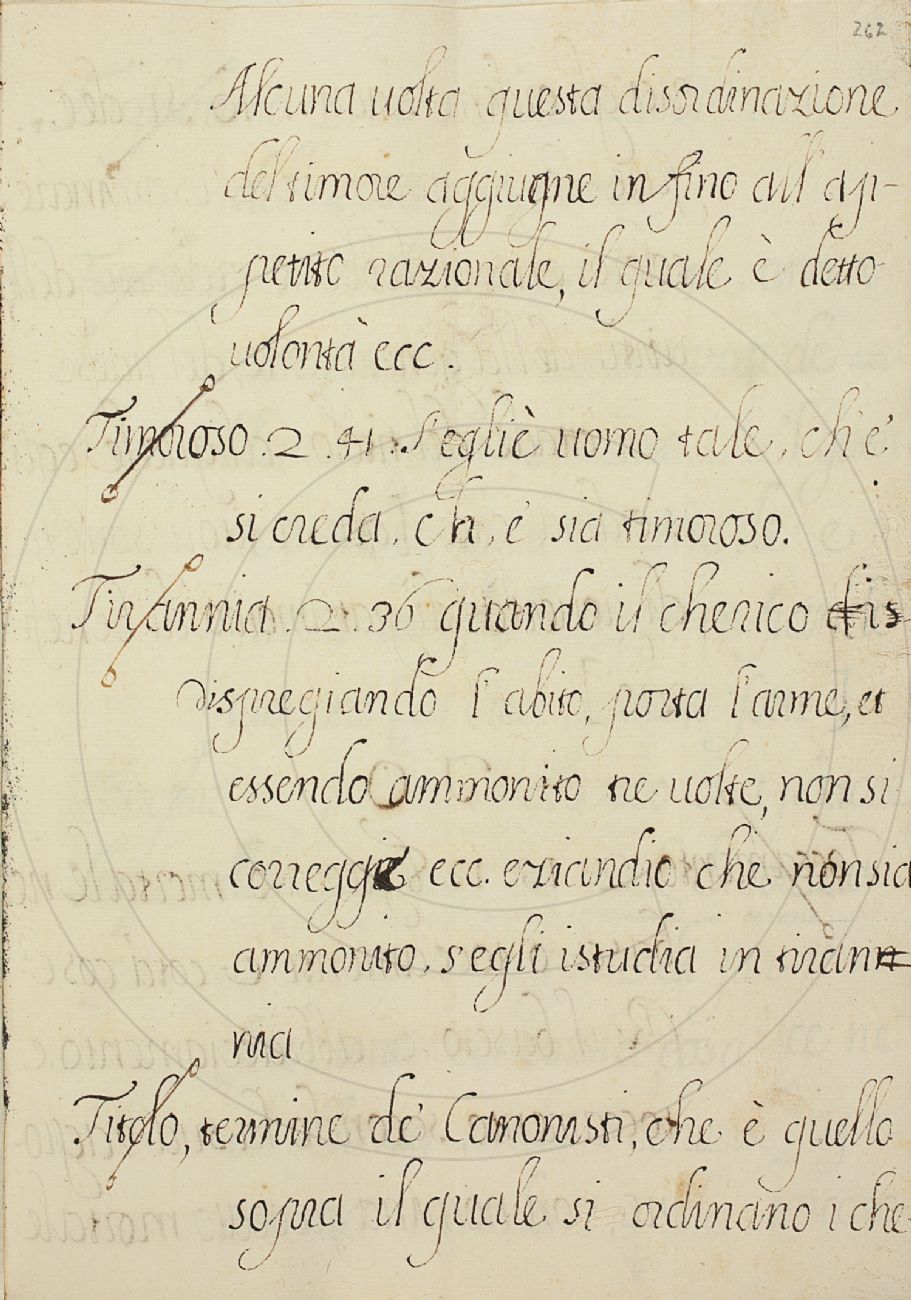 262
Alcuna uolta questa disordinazione
del timore aggiugne in fino all' ap-
petito razionale, il quale è detto
uolontà ecc.
Timoroso. 2. 41. S'egliè uomo tale, ch' e'
si creda, ch, e' sia timoroso.
Tirannia. 2. 36 quando il cherico dis
dispregiando l'abito, porta l'arme, et
essendo ammonito tre uolte, non si
corregge ecc. eziandio che non sia
ammonito, s'egli istudia in tirann
nia
Titolo, termine de' Canonisti, che è quello
sopra il quale si ordinano i che